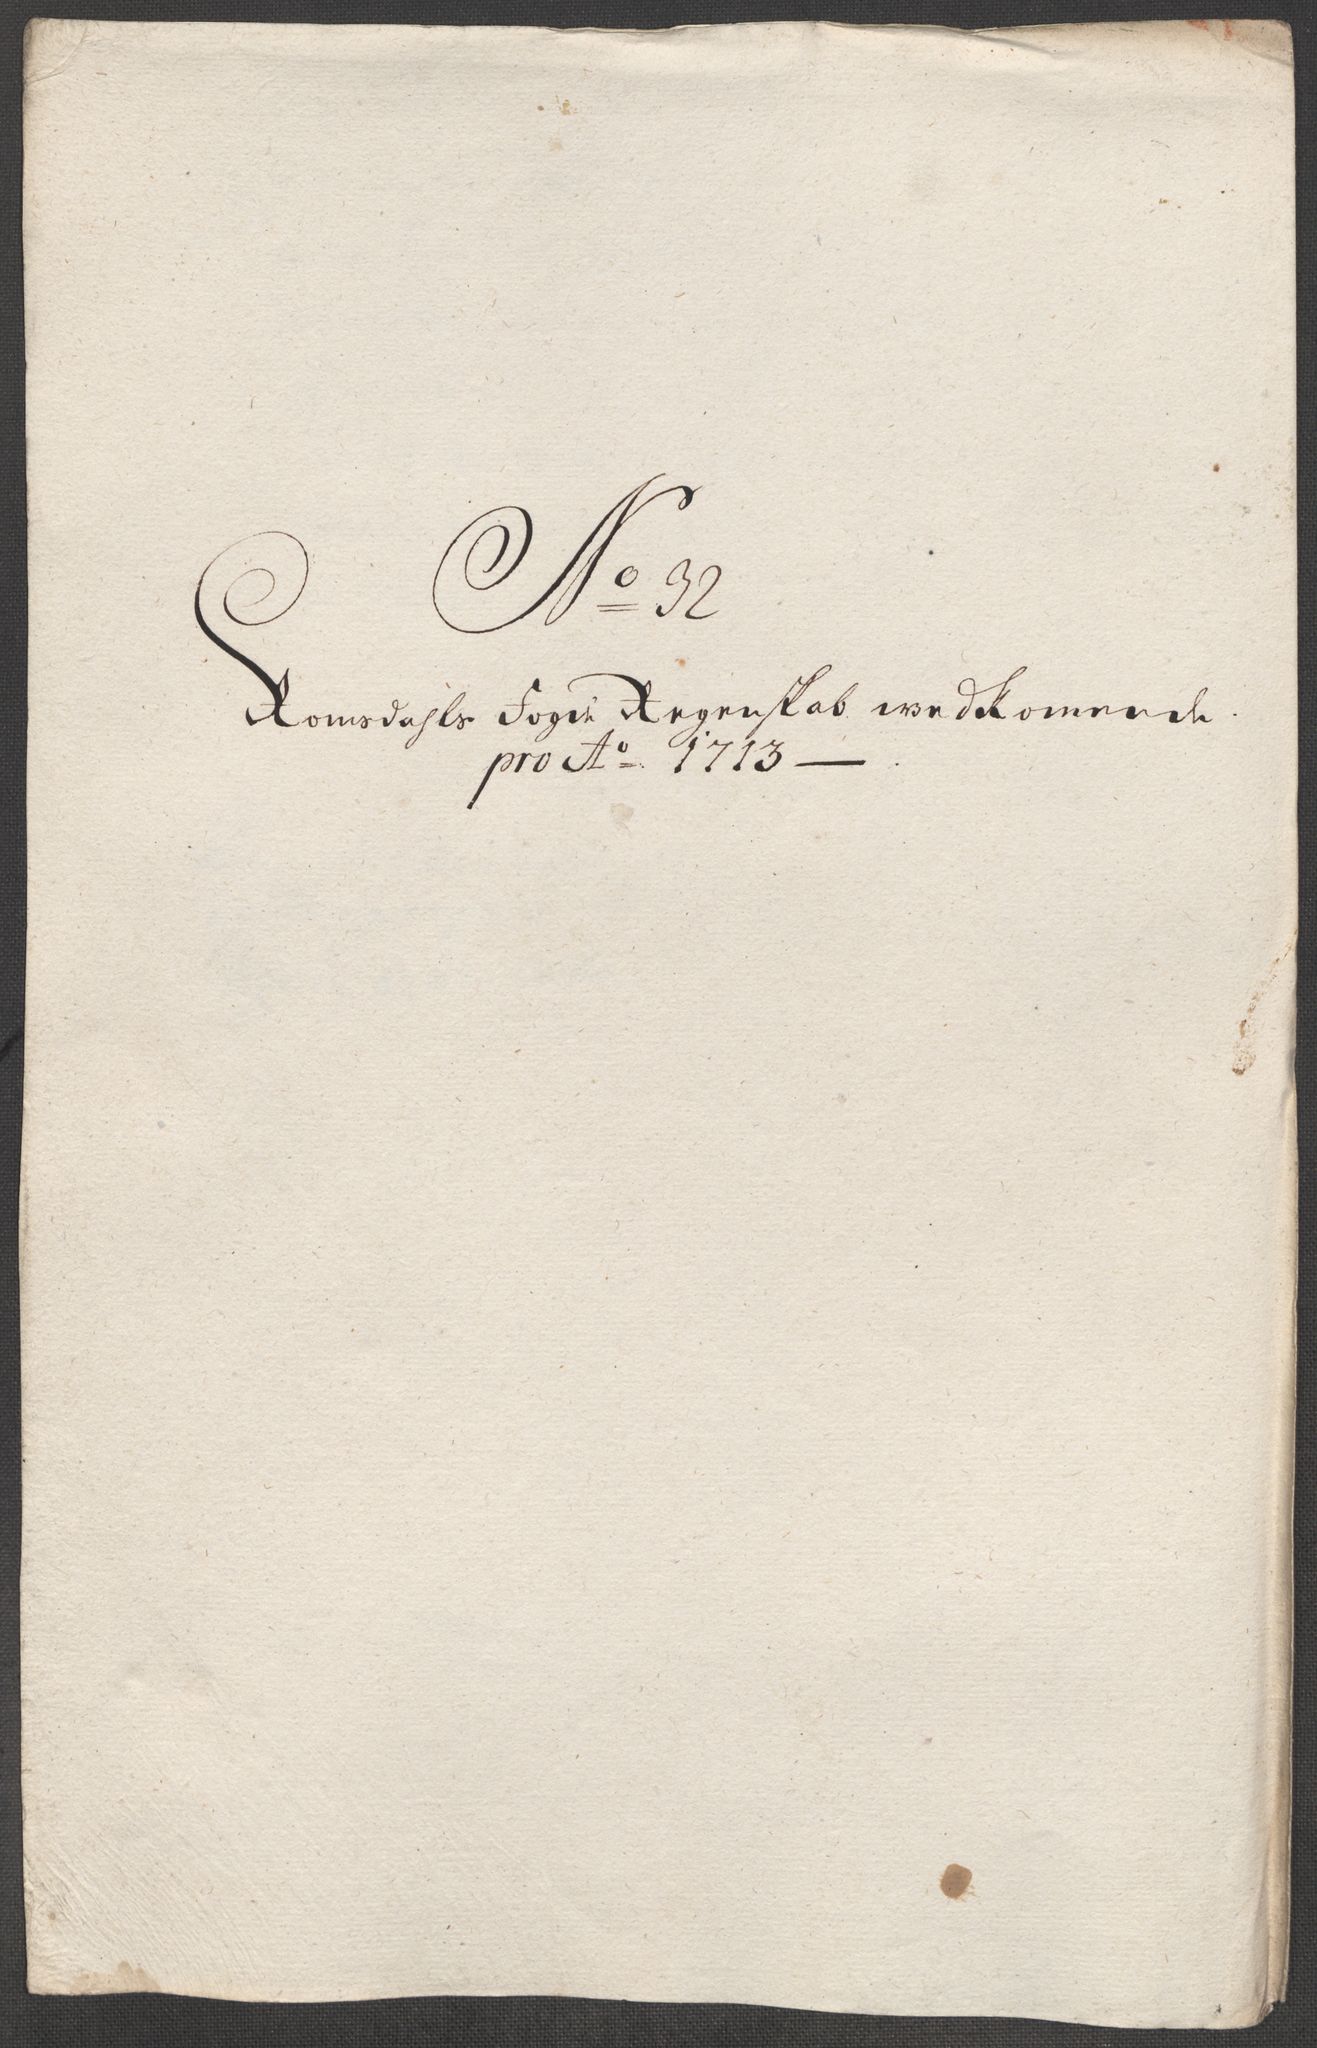 No 32
Romsdahls Fogdr Regenskab wedkomende
pro Ao. 1713 —